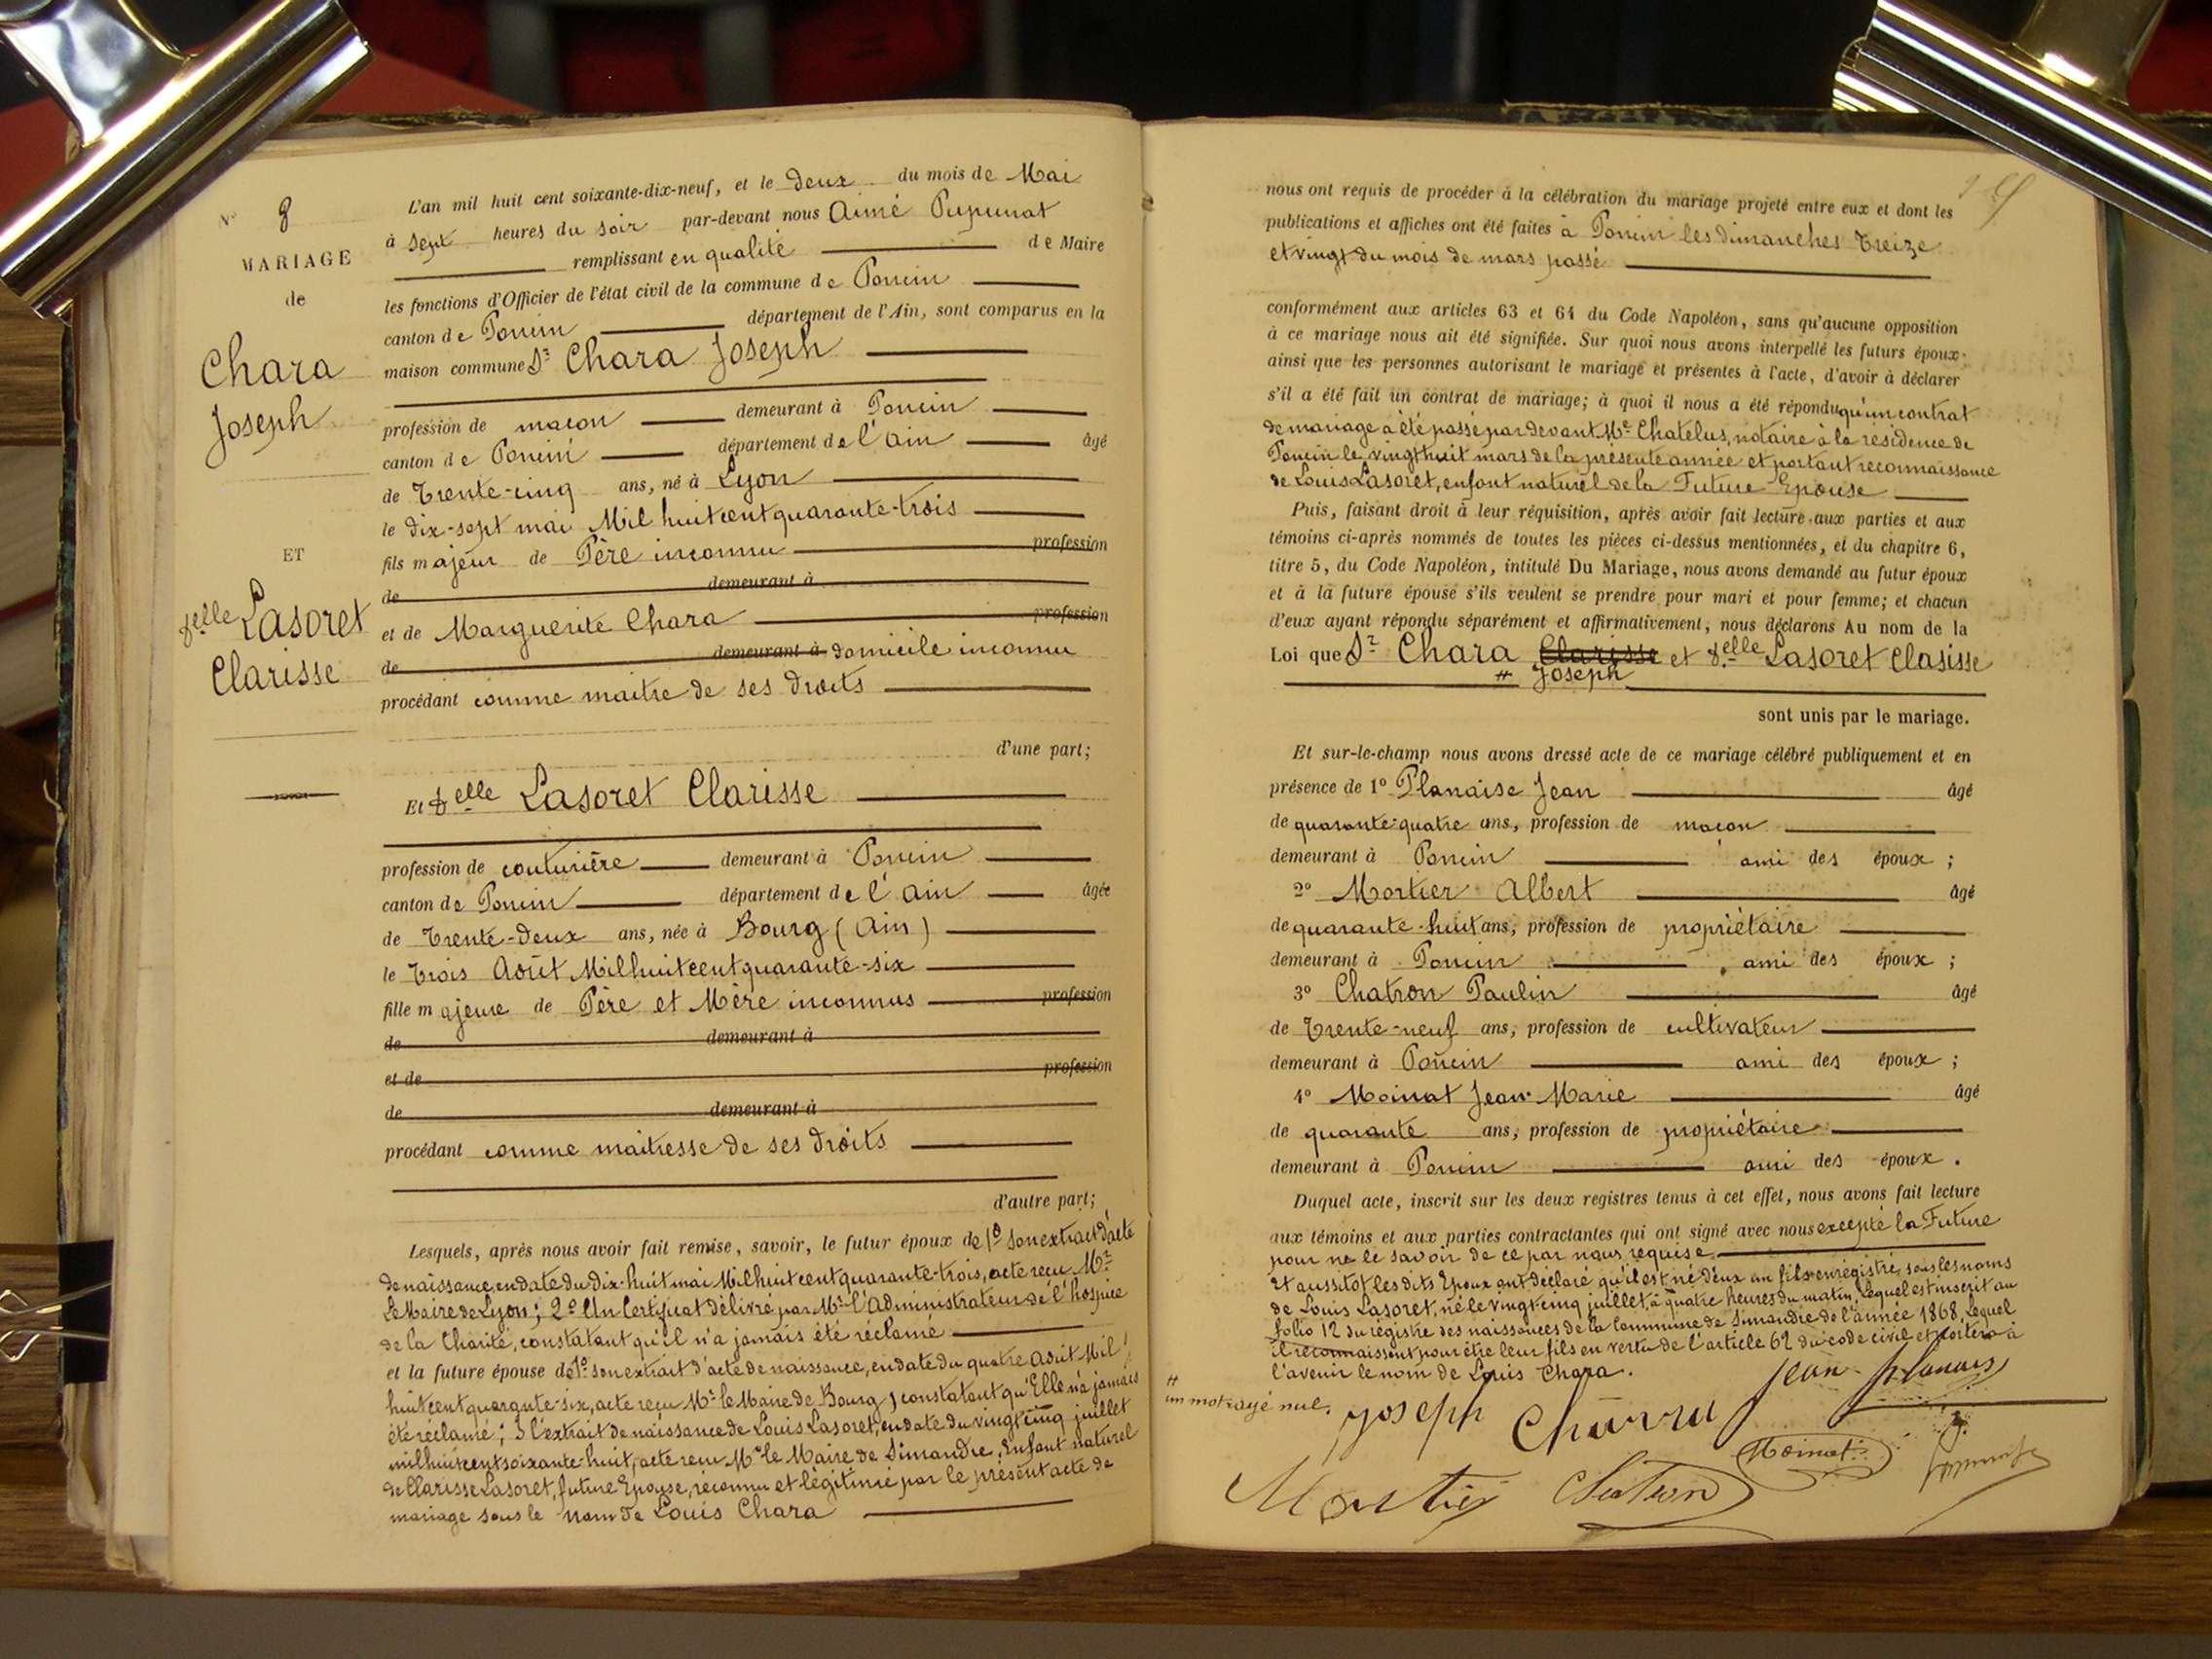 Nº 8
MARIAGE
de
Chara
Joseph
ET
Delle Lasoret
Clarisse
L'an mil huit cent soixante-dix-neuf, et le deux du mois de Mai
à sept heures du soir par-devant nous Aimé Pupunat
remplissant en qualité de Maire
les fonctions d'Officier de l'état civil de la commune de Poncin
canton de Poncin département de l'Ain, sont comparus en la
maison commune Sr Chara Joseph
profession de macon demeurant à Poncin
canton de Poncin département de l'Ain âgé
de Trente-cinq ans, né à Lyon
le dix-sept mai Mil huit cent quarante-trois
fils majeur de Père inconnu profession
de demeurant à
et de Marguerite Chara profession
de demeurant à domicile inconnu
procédant comme maitre de ses droits
d'une part;
Et Delle Lasoret Clarisse
profession de couturière demeurant à Poncin
canton de Poncin département de l'Ain âgée
de Trente-deux ans, née à Bourg (Ain)
le trois Août Mil huit cent quarante-six
fille majeure de Père et Mère inconnus profession
de demeurant à
et de profession
de demeurant à
procédant comme maitresse de ses droits
d'autre part;
Lesquels, après nous avoir fait remise, savoir, le futur époux de 1º son extrait d'acte
de naissance, en date du dix-huit mai Mil huit cent quarante-trois, acte reçu Mr
Le Maire de Lyon; 2º Un Certificat délivré par Mr l'Administrateur de l'hospice
de la Charité, constatant qu'il n'a jamais été réclamé
et la future épouse de 1º son extrait d'acte de naissance, en date du quatre Août Mil
huit cent quarante-six, acte reçu Mr le Maire de Bourg, constatant qu'Elle n'a jamais
été réclamé; 3 l'extrait de naissance de Louis Lasoret, en date du vingt cinq juillet
mil huit cent soixante-huit, acte reçu Mr le Maire de Simandre, Enfant naturel
de Clarisse Lasoret, future Epouse, reconnu et légitimé par le présent acte de
mariage sous le nom de Louis Chara
nous ont requis de procéder à la célébration du mariage projeté entre eux et dont les
publications et affiches ont été faites à Poncin les dimanches treize
et vingt du mois de mars passé
conformément aux articles 63 et 64 du Code Napoléon, sans qu'aucune opposition
à ce mariage nous ait été signifiée. Sur quoi nous avons interpellé les futurs époux
ainsi que les personnes autorisant le mariage et présentes à l'acte, d'avoir à déclarer
s'il a été fait un contrat de mariage; à quoi il nous a été répondu qu'un contrat
de mariage a été passé par devant Me Chatelus, notaire à la résidence de
Poncin le vingt huit mars de la présente année et portant reconnaissance
de Louis Lasoret, enfant naturel de la Future Epouse
Puis, faisant droit à leur réquisition, après avoir fait lecture aux parties et aux
témoins ci-après nommés de toutes les pièces ci-dessus mentionnées, et du chapitre 6,
titre 5, du Code Napoléon, intitulé Du Mariage, nous avons demandé au futur époux
et à la future épouse s'ils veulent se prendre pour mari et pour femme; et chacun
d'eux ayant répondu séparément et affirmativement, nous déclarons Au nom de la
Loi que Sr Chara Clarisse et Delle Lasoret Clasisse
# Joseph
sont unis par le mariage.
Et sur-le-champ nous avons dressé acte de ce mariage célébré publiquement et en
présence de 1º Planaise Jean âgé
de quarante-quatre ans, profession de macon
demeurant à Poncin ami des époux;
2º Mortier Albert âgé
de quarante-huit ans, profession de propriétaire
demeurant à Poncin ami des époux;
3º Chatron Paulin âgé
de Trente-neuf ans, profession de cultivateur
demeurant à Poncin ami des époux;
4º Moinat Jean-Marie âgé
de quarante ans, profession de propriétaire
demeurant à Poncin ami des époux.
Duquel acte, inscrit sur les deux registres tenus à cet effet, nous avons fait lecture
aux témoins et aux parties contractantes qui ont signé avec nous excepté la Future
pour ne le savoir de ce par nous requise.
Et aussitôt les dits Epoux ont déclaré qu'il est né d'eux un fils enregistré, sous les noms
de Louis Lasoret, né le vingt-cinq juillet, à quatre heures du matin, Lequel est inscrit au
folio 12 du régistre des naissances de la Commune de Simandre de l'année 1868, Lequel
il reconnaissent pour être leur fils en vertu de l'article 62 du code civil et portera à
l'avenir le nom de Louis Chara.
# un mot rayé nul.
Joseph Charra Jean Planais
Mortier Chatron Moinat Pupunat